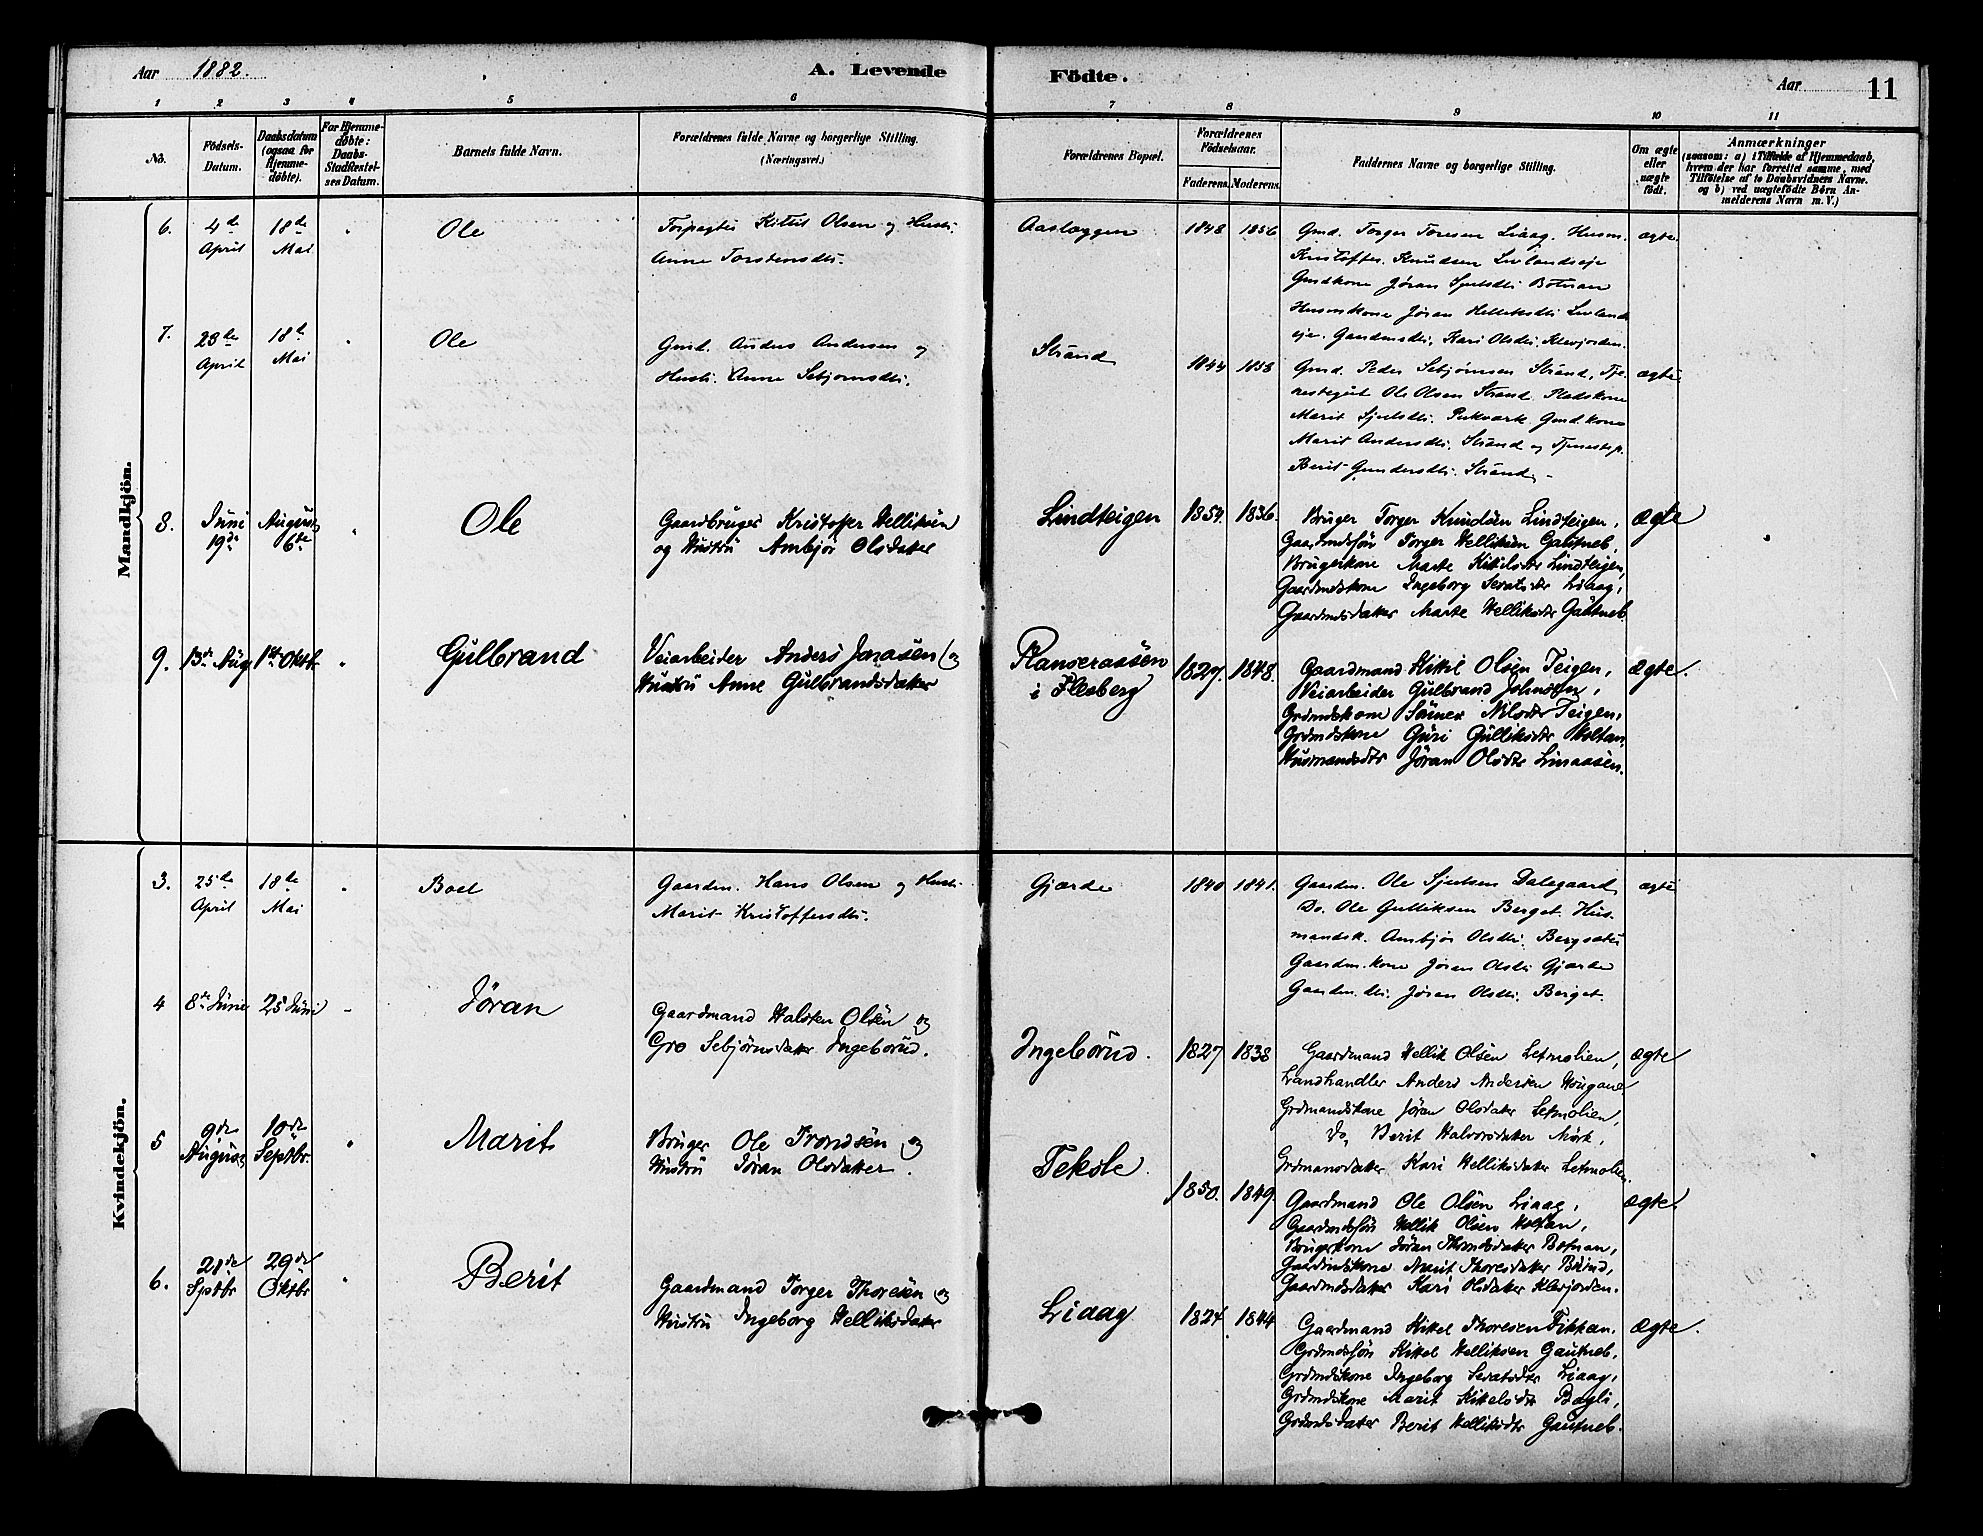 Aar 1882.
A. Levende Födte.
Aar 11
1 2 3 4 5 6 7 8 9 10 11
No.
Födsels-Datum.
Daabsdatum (ogsaa for Hjemme-döbte).
For Hjemme-döbte: Daabs-Stadfæstel-ses Datum.
Barnets fulde Navn.
Forældrenes fulde Navne og borgerlige Stilling. (Næringsvei.)
Forældrenes Bopæl.
Forældrenes Födselsaar.
Faderens. Moderens.
Faddernes Navne og borgerlige Stilling.
Om ægte eller uægte født.
Anmærkninger
(saasom: a) i Tilfælde af Hjemmedaab,
hvem der har forrettet samme, med
Tilföielse af to Daabsvidners Navne.
og b) ved uægtefödte Börn An-
melderens Navn m. V.)
Mandkjön.
6. 4de April 18de Mai " Ole
Kittil Olsen og Hustr.
Anne Torstensdtr.
1848 1856
Gmd. Torger Toresen Liaag. Husm.
Kristoffer Knudsen Livlandseje
Gmdkone Jøran Sjulsdtr Botnan
Husmskone Jøran Helliksdtr Livlands
eje. Kari Olsdtr. Klevjorden.
ægte.
7. 23de April 18de Mai " Ole
Gmd. Anders Andersen og
Hustr. Anne Sebjørnsdtr.
Strand
1844 1858
Gmd. Peder Sebjørnsen Strand, Tje-
nestegut Ole Olsen Strand. Pladskone
Marit Sjulsdtr. Gmd.kone
Marit Andersdtr. Strand og Tjenestep.
Berit Gundersdtr. Strand
ægte
8. Juni 19de August 6te " Ole
Gaardbruger Kristofer Helliksen
og Hustru Ambjør Olsdatter
Lindteigen
1854. 1836.
Bruger Torger Knudsen Lindteigen,
Gaardmdssøn Torger Helliksen Gautneb,
Brugerkone Marte Kittelsdtr Lindteigen,
Gaardmdskone Ingeborg Liaag,
Gaardmdsdatter Marte Helliksdtr Gautneb
ægte
9. 13de Aug 1ste Oktb. " Gulbrand
Veiarbeider Anders Jonassen og
Hustru Anne Gulbrandsdatter
i Flesberg
1827. 1848.
Gaardmand Kittil Olsen Teigen,
Veiarbeider Gulbrand Johnsen,
Grdmdskone Nilsdtr Teigen,
Grdmdskone Guri Gulliksdtr Holtan,
Husmandsdtr Jøran Olsdtr Linaasen.
ægte.
Kvindekjön.
3. 25de April 18de Mai " Boel
Gaardm. Hans Olsen og Hustr.
Marit Kristoffersdtr.
Gjærde
1840 1841.
Gaardm. Ole Sjulsen Dalegaard
Do. Ole Gulliksen Berget. Hus-
mandsk. Ambjør Olsdtr.
Gaardm.kone Jøran Olsdtr Gjærde
Gaardm.dtr. Jøran Olsdtr. Berget.
ægte
4 8de Juni 25 Juni - Jøran
Gaardmand Halsten Olsen og
Gro Sebjørnsdatter Ingebørud.
Ingebørud.
1827 1838
Gaardmand Hellik Olsen Letmolien,
Landhandler Anders Andersen Hougane
Grdmandskone Jøran Olsdatter Letmolien,
Do, Berit Halvorsdatter Mørk,
Grdmandsdatter Kari Helliksdatter Letmolien
ægte
5 9de August 10de Septbr. " Marit
Bruger Ole Trondsen og
Hustru Jøran Olsdatter.
Teksle
1850. 1849.
Gaardmand Ole Olsen Liaag,
Gaardmdssøn Hellik Olsen Holtan,
Brugerkone Jøran Throndsdatter Botnan,
Gaardmdskone Marit Thoresdatter
Gaardmdsdatter Kari Olsdatter Klevjorden.
ægte.
6. 28de Septbr 29de Oktbr " Berit
Gaardmand Torger Thoresen og
Hustru Ingeborg Helliksdatter
Liaag
1824. 1844
Gaardmand Kittel Thoresen Fikkan,
Grdmdssøn Kittel Helliksen Gautneb,
Grdmdskone Ingeborg Liaag,
Grdmdskone Marit Kittelsdtr Bøgli,
Grdmdsdatter Berit Helliksdtr Gautneb.
ægte.